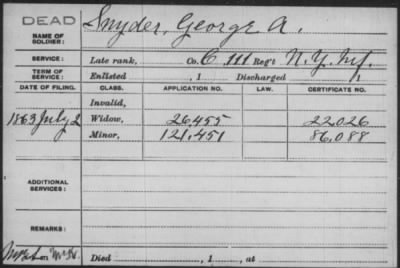 DEAD
NAME OF SOLDIER: Snyder, George A.
SERVICE: Late rank, Co. C, 111 Reg't N.Y. Inf.
TERM OF SERVICE: Enlisted , 1 Discharged , 1
DATE OF FILING. CLASS. APPLICATION NO. LAW. CERTIFICATE NO.
Invalid,
1863 July 2 Widow, 26,455 22,026
Minor, 121,451 86,088
ADDITIONAL SERVICES:
REMARKS:
Died , 1 , at